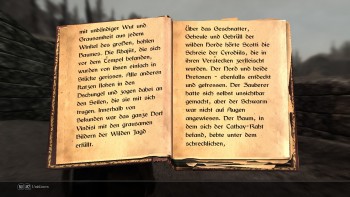 mit unbändiger Wut und
Grausamkeit aus jedem
Winkel des großen, hohlen
Baumes. Die Khajiit, die sich
vor dem Tempel befanden,
wurden von ihnen einfach in
Stücke gerissen. Alle anderen
Katzen flohen in den
Dschungel und zogen dabei an
den Seilen, die sie mit sich
trugen. Innerhalb von
Sekunden war das ganze Dorf
Vindisi mit den grausamen
Bildern der Wilden Jagd
erfüllt.
Über das Geschnatter,
Geheule und Gebrüll der
wilden Horde hörte Scotti die
Schreie der Cyrodiils, die in
ihren Verstecken zerfleischt
wurden. Der Nord und beide
Bretonen - ebenfalls entdeckt
und gefressen. Der Zauberer
hatte sich selbst unsichtbar
gemacht, aber der Schwarm
war nicht auf Augen
angewiesen. Der Baum, in
dem sich der Cathay-Raht
befand, bebte unter dem
schrecklichen,